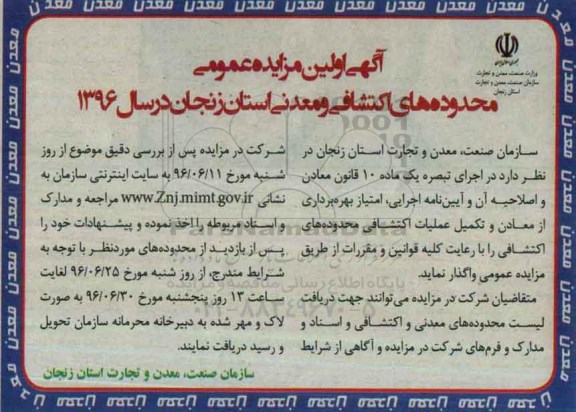 جمهوری اسلامی ایران
وزارت صنعت، معدن و تجارت
سازمان صنعت، معدن و تجارت
استان زنجان
آگهی اولین مزایده عمومی
محدوده های اکتشافی و معدنی استان زنجان در سال ۱۳۹۶
سازمان صنعت، معدن و تجارت استان زنجان در
نظر دارد در اجرای تبصره یک ماده ۱۰ قانون معادن
و اصلاحیه آن و آیین‌نامه اجرایی، امتیاز بهره‌برداری
از معادن و تکمیل عملیات اکتشافی محدوده‌های
اکتشافی را با رعایت کلیه قوانین و مقررات از طریق
مزایده عمومی واگذار نماید.
متقاضیان شرکت در مزایده می‌توانند جهت دریافت
لیست محدوده‌های معدنی و اکتشافی و اسناد و
مدارک و فرم‌های شرکت در مزایده و آگاهی از شرایط
شرکت در مزایده پس از بررسی دقیق موضوع از روز
شنبه مورخ ۹۶/۰۶/۱۱ به سایت اینترنتی سازمان به
نشانی www.Znj.mimt.gov.ir مراجعه و مدارک
و اسناد مربوطه را اخذ نموده و پیشنهادات خود را
پس از بازدید از محدوده‌های موردنظر با توجه به
شرایط مندرج، از روز شنبه مورخ ۹۶/۰۶/۲۵ لغایت
ساعت ۱۳ روز پنجشنبه مورخ ۹۶/۰۶/۳۰ به صورت
لاک و مهر شده به دبیرخانه محرمانه سازمان تحویل
و رسید دریافت نمایند.
سازمان صنعت، معدن و تجارت استان زنجان